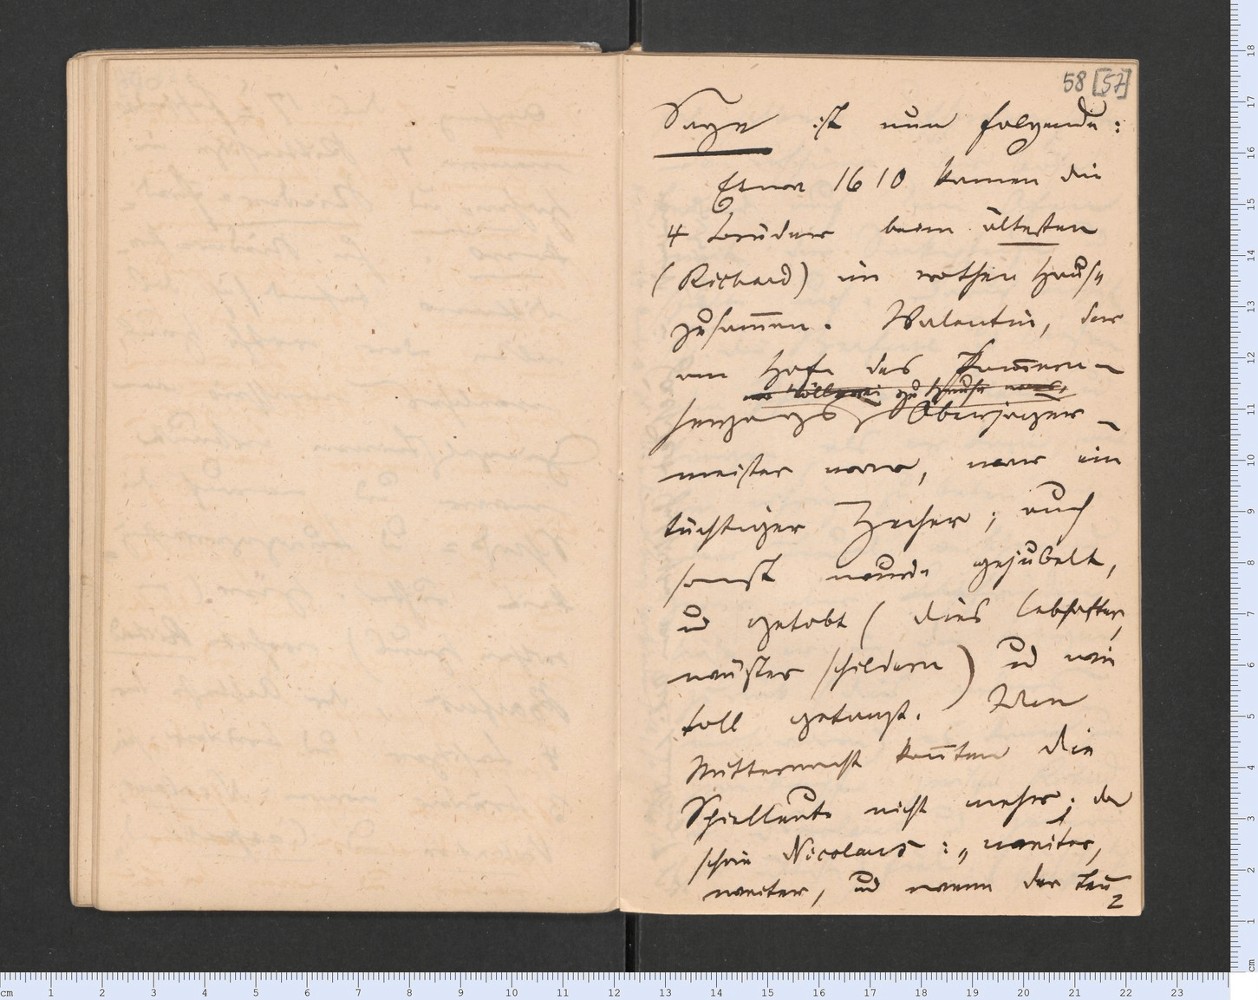 58 [57]
Sage ist nun folgende:
Etwa 1610 kamen die
4 Brüder beim ältesten
(Richard) im rothen Hause
zusammen. Valentin, der
am Hofe des Pommern-
zu Hause
herzogs Oberjäger-
meister war, war ein
tüchtiger Zecher; auch
sonst wurde gejubelt,
ud getobt (dies lebhafter,
wüster schildern) ud wie
toll getanzt. Um
Mitternacht konnten die
Spielleute nicht mehr; da
schrie Nicolaus: „weiter,
weiter, ud wenn der Teu
2